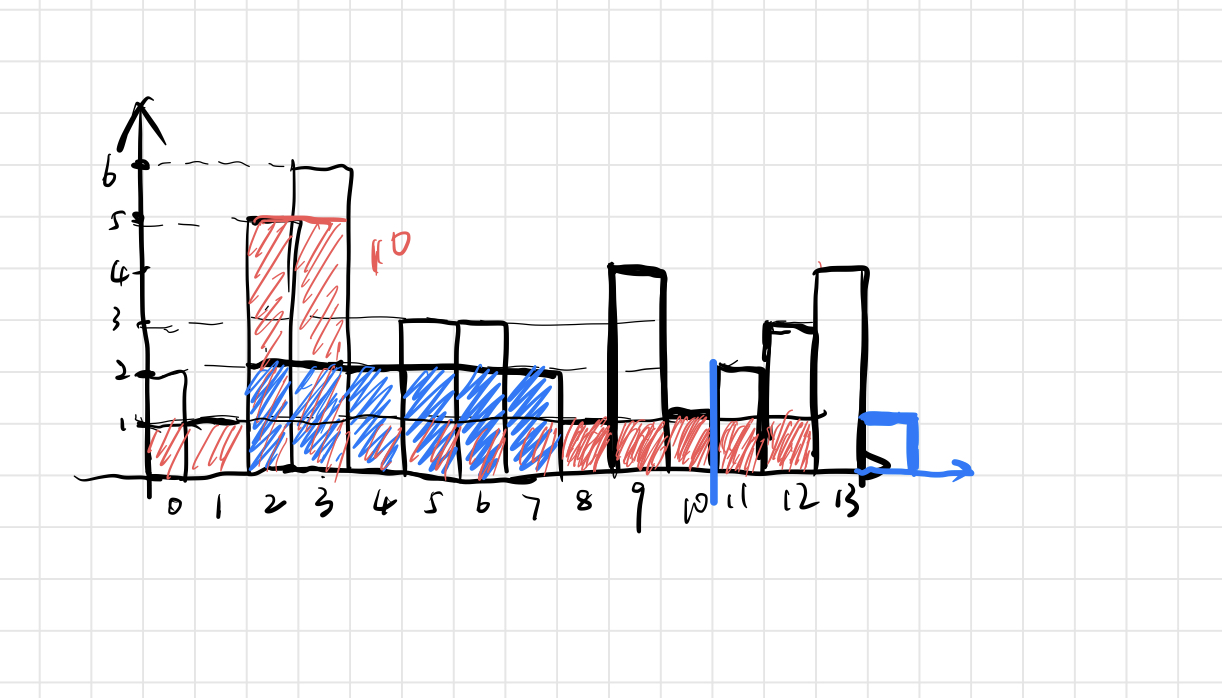 6
5
10
4
3
2
1
0 1 2 3 4 5 6 7 8 9 10 11 12 13